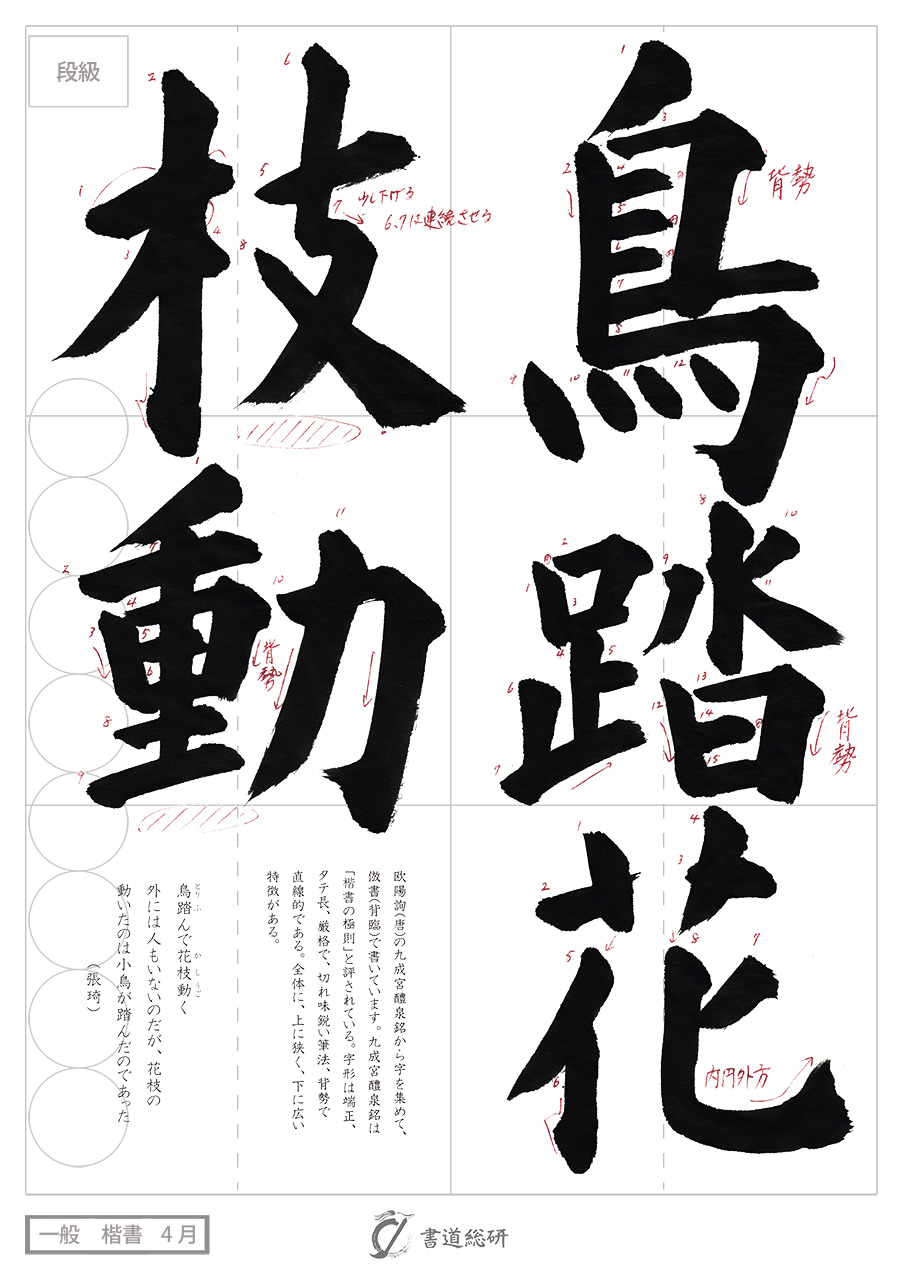 段級
鳥踏花
枝動
背勢
少し下げる
6、7は連続させる
背勢
背勢
内円外方
欧陽詢(唐)の九成宮醴泉銘から字を集めて、
倣書(背臨)で書いています。九成宮醴泉銘は
「楷書の極則」と評されている。字形は端正、
タテ長、厳格で、切れ味鋭い筆法、背勢で
直線的である。全体に、上に狭く、下に広い
特徴がある。
鳥踏んで花枝動く
とり ふ か し うご
外には人もいないのだが、花枝の
動いたのは小鳥が踏んだのであった
(張琦)
一般 楷書 4月
書道総研